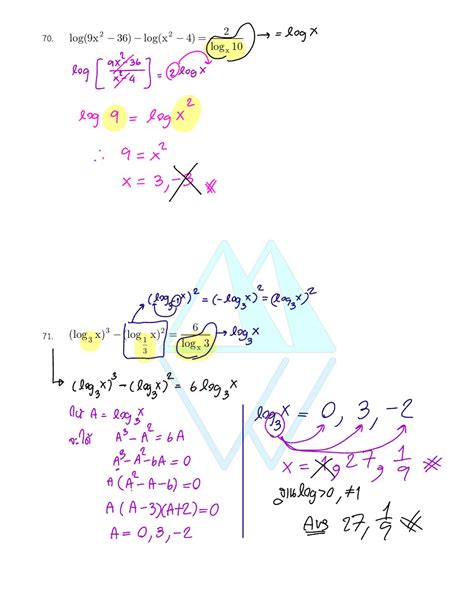 70. log(9x² − 36) − log(x² − 4) = 2/(logₓ 10) → = log x
log [ (9x² − 36)/(x² − 4) ] = 2 log x
log 9 = log x²
∴ 9 = x²
x = 3, −3 ※
(log₃₋₁ x)² = (−log₃ x)² = (log₃ x)²
71. (log₃ x)³ − (log_{1/3} x)² = 6/(logₓ 3) → log₃ x
(log₃ x)³ − (log₃ x)² = 6 log₃ x
ให้ A = log₃ x
จะได้ A³ − A² = 6A
A³ − A² − 6A = 0
A (A² − A − 6) = 0
A (A − 3)(A + 2) = 0
A = 0, 3, −2
log₃ x = 0, 3, −2
x = 1, 27, 1/9 ※
ฐาน log > 0, ≠ 1
Ans 27, 1/9 ※